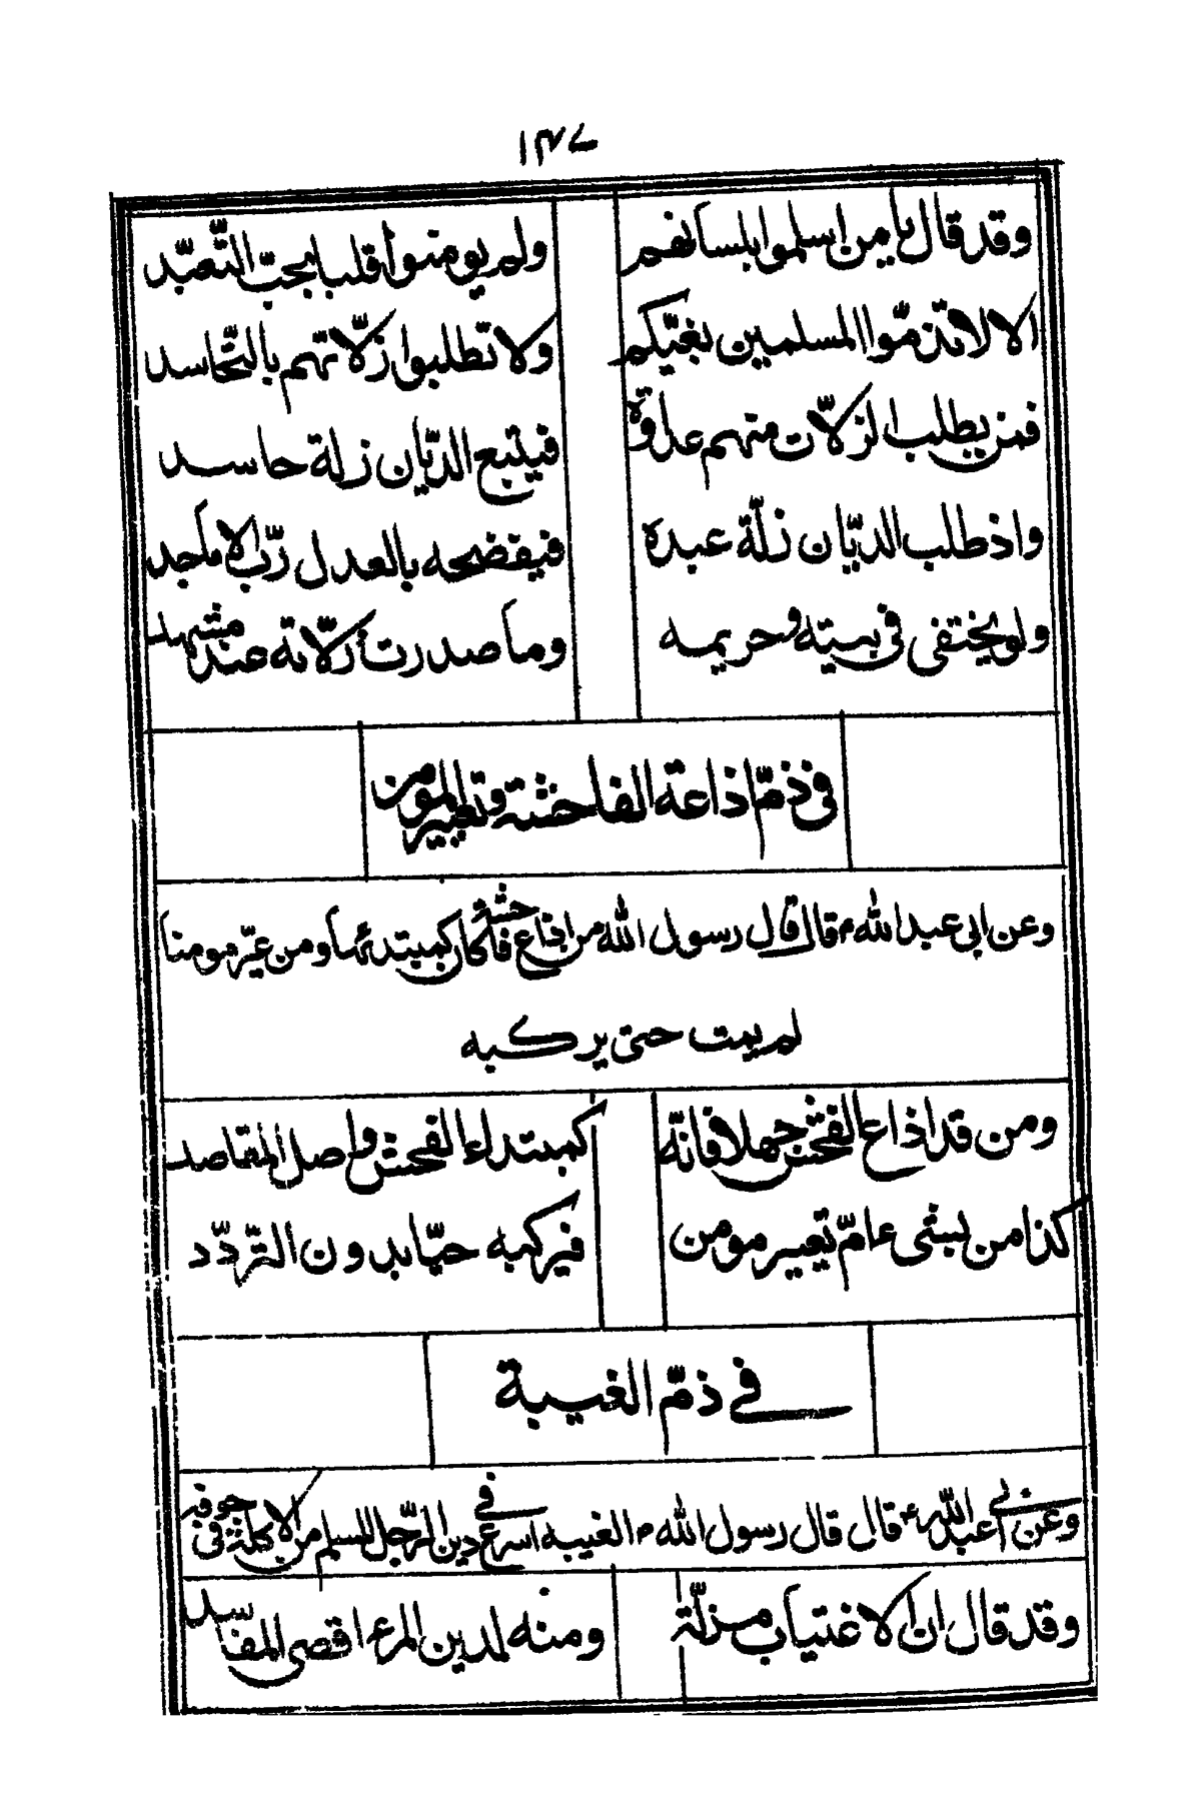 ١٣٧
وقد قال يا من اسلموا بلسانهم ولم يومنوا قلبا بحبّ التّصيّد
الا لا تذمّوا المسلمين بغيّكم ولا تطلبوا زلّاتهم بالتّحاسد
فمن يطلب الزلّات منهم عداوة فيتبع الديّان زلة حاسد
واذ طلب الديّان زلّة عبده فيفضحه بالعدل ربّ الاماجد
ولو يختفى فى بيته وحريمه وما صدرت زلّاته عند مشهد
فى ذمّ اذاعة الفاحشة وتعيير المومن
وعن ابى عبد الله ع قال قال رسول الله من اذاع فاحشة كان كمبتدئها ومن عيّر مومنا
لم يمت حتى يركبه
ومن قد اذاع الفحش جهلا فانّه كمبتداء الفحش واصل المقاصد
كذا من بشئ عامّ تعيير مومن فيركبه حيّا بدون التّردّد
فى ذمّ الغيبة
وعن ابى عبد الله ع قال قال رسول الله ص الغيبه اسرع فى دين الرّجل المسلم من الاكلة فى جوفه
وقد قال ان الاغتياب مزلّة ومنه لدين المرء اقصى المفاسد